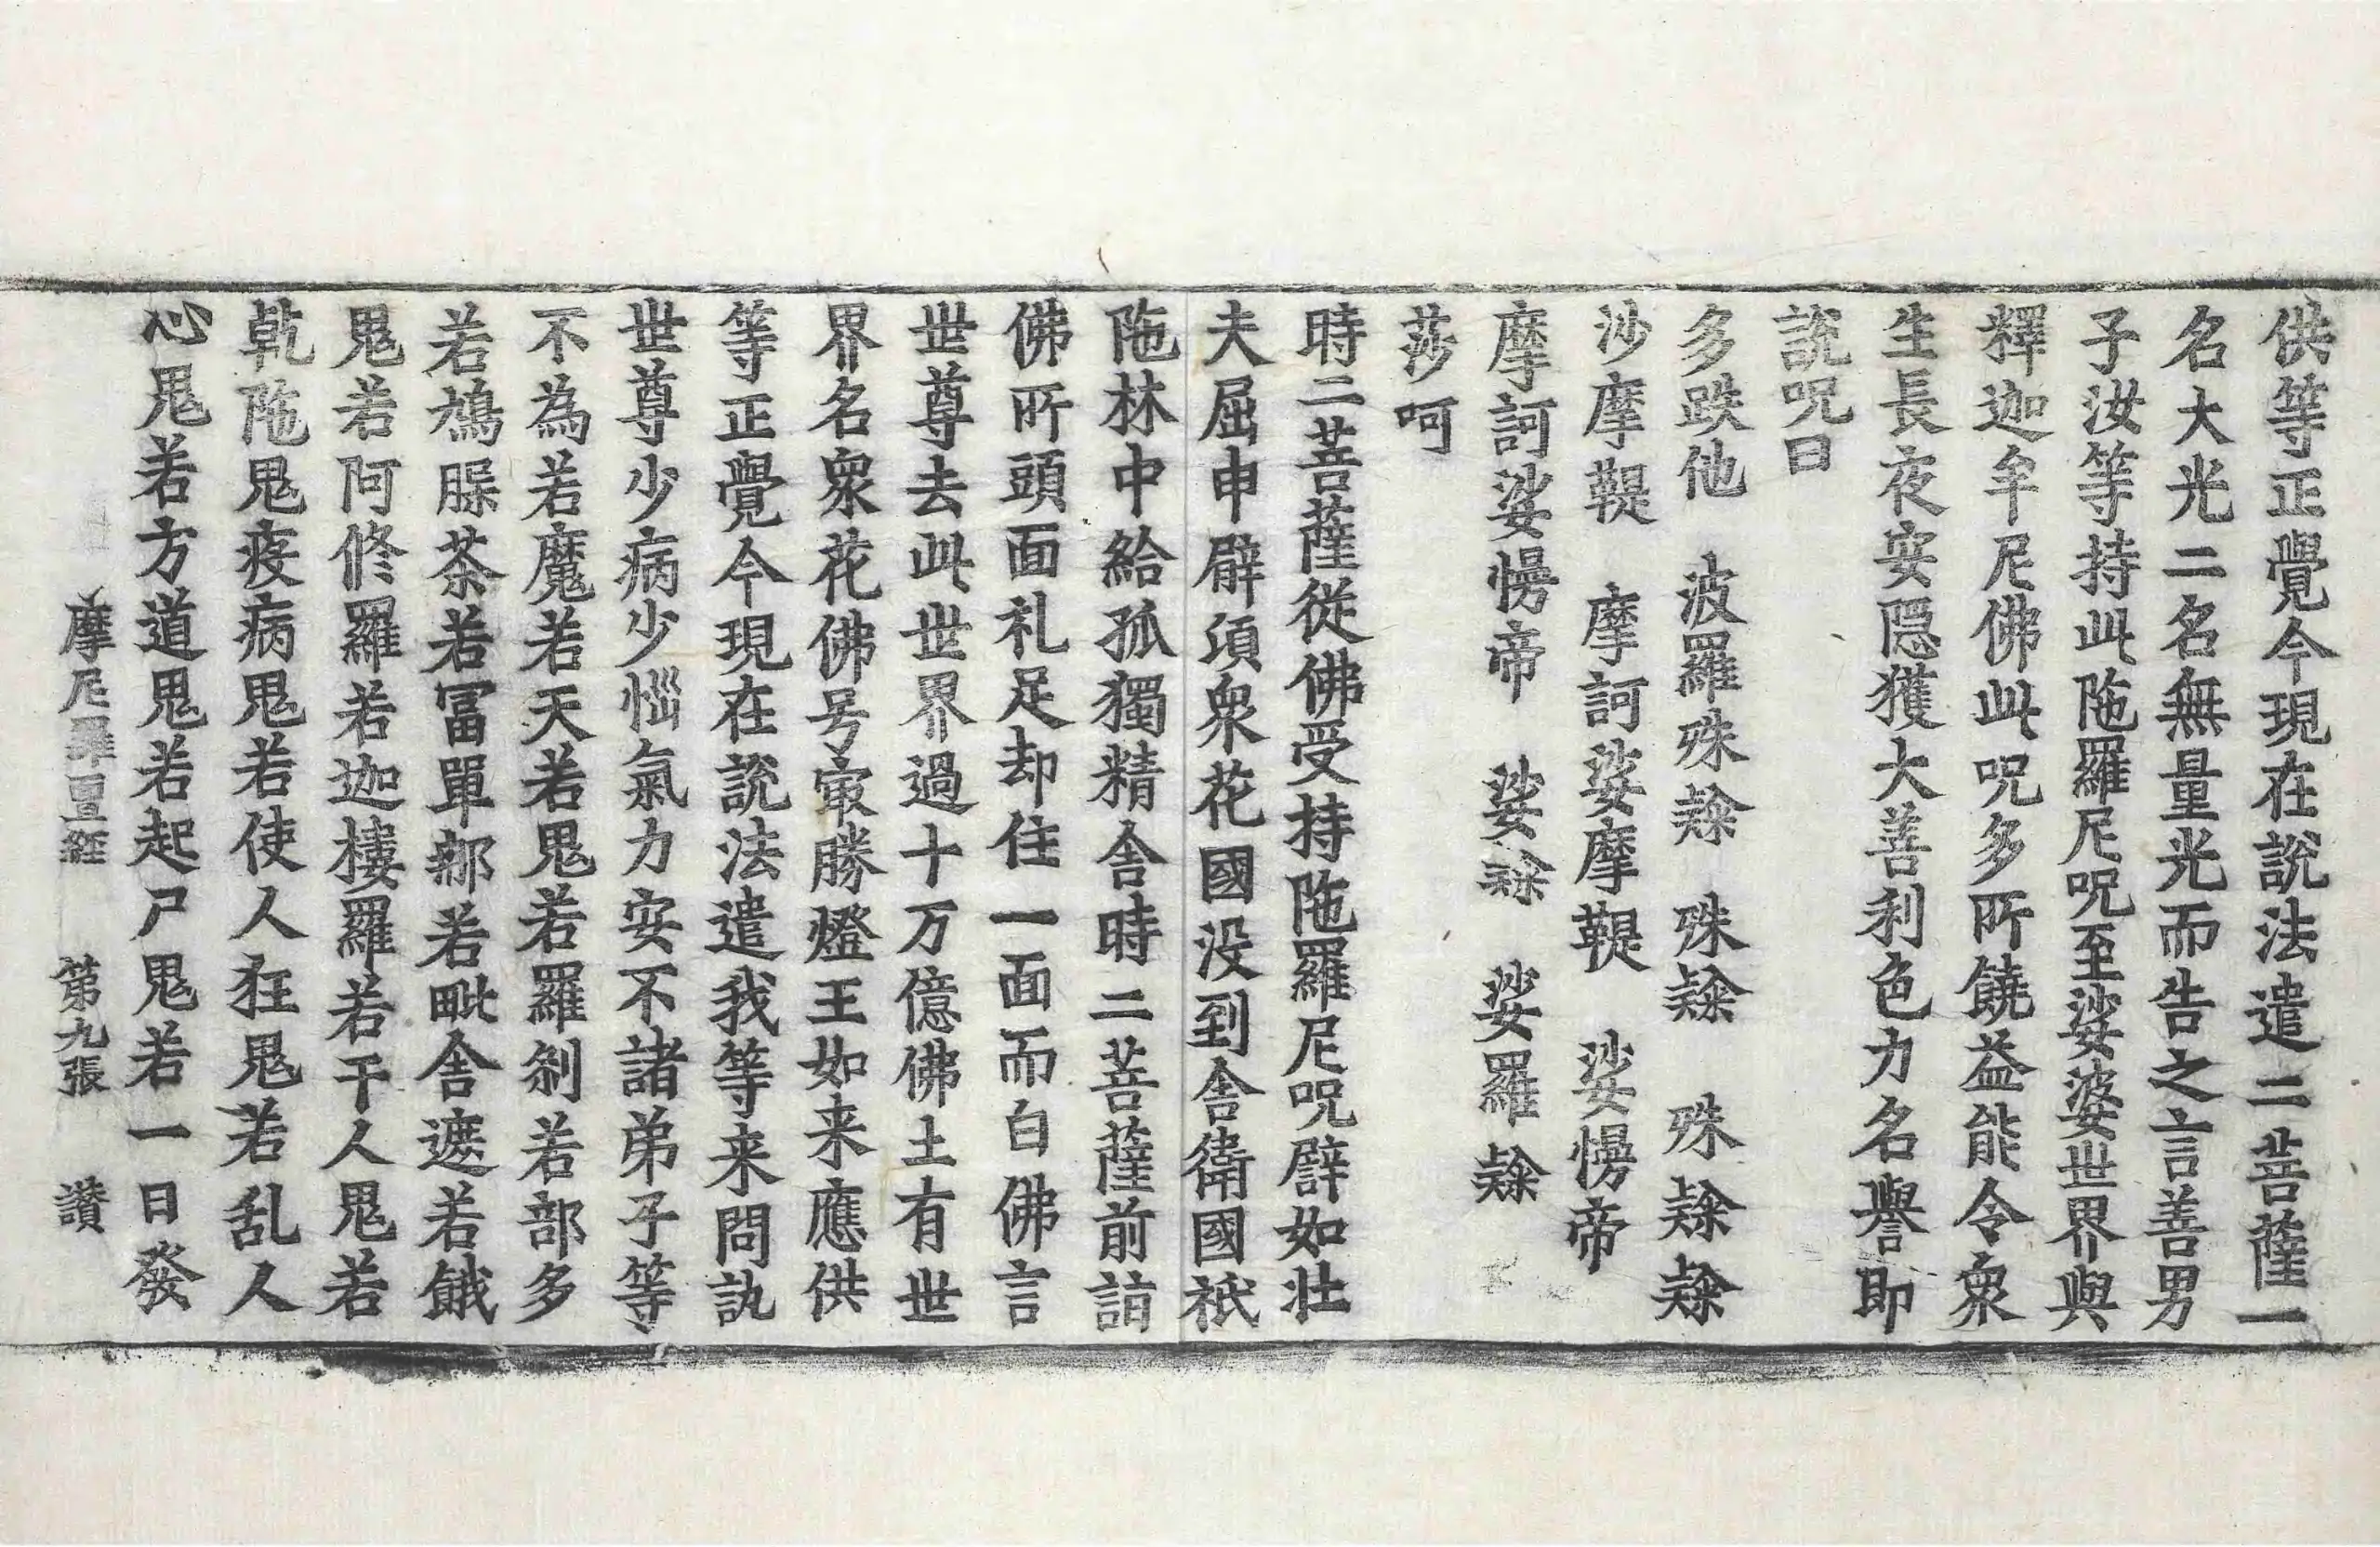 供等正覺今現在說法遣二菩薩一
名大光二名無量光而告之言善男
子汝等持此陁羅尼呪至娑婆世界與
釋迦牟尼佛此呪多所饒益能令衆
生長夜安隱獲大善利色力名譽即
說呪曰
多跌他　波羅殊𨽻　殊𨽻　殊𨽻𨽻
沙摩鞮　摩訶娑摩鞮　娑慢帝
摩訶娑慢帝　娑𨽻　娑羅𨽻
莎呵
時二菩薩從佛受持陁羅尼呪譬如壯
夫屈申臂須衆花國没到舍衛國祇
陁林中給孤獨精舍時二菩薩前詣
佛所頭面礼足却住一面而白佛言
世尊去此世界過十万億佛土有世
界名衆花佛号㝡勝燈王如来應供
等正覺今現在說法遣我等来問訊
世尊少病少惱氣力安不諸弟子等
不為若魔若天若鬼若羅剎若部多
若鳩脲荼若冨單那若毗舍遮若餓
鬼若阿修羅若迦樓羅若干人鬼若
乾陁鬼疫病鬼若使人狂鬼若乱人
心鬼若方道鬼若起尸鬼若一日發
摩尼羅亶經　第九張　讃